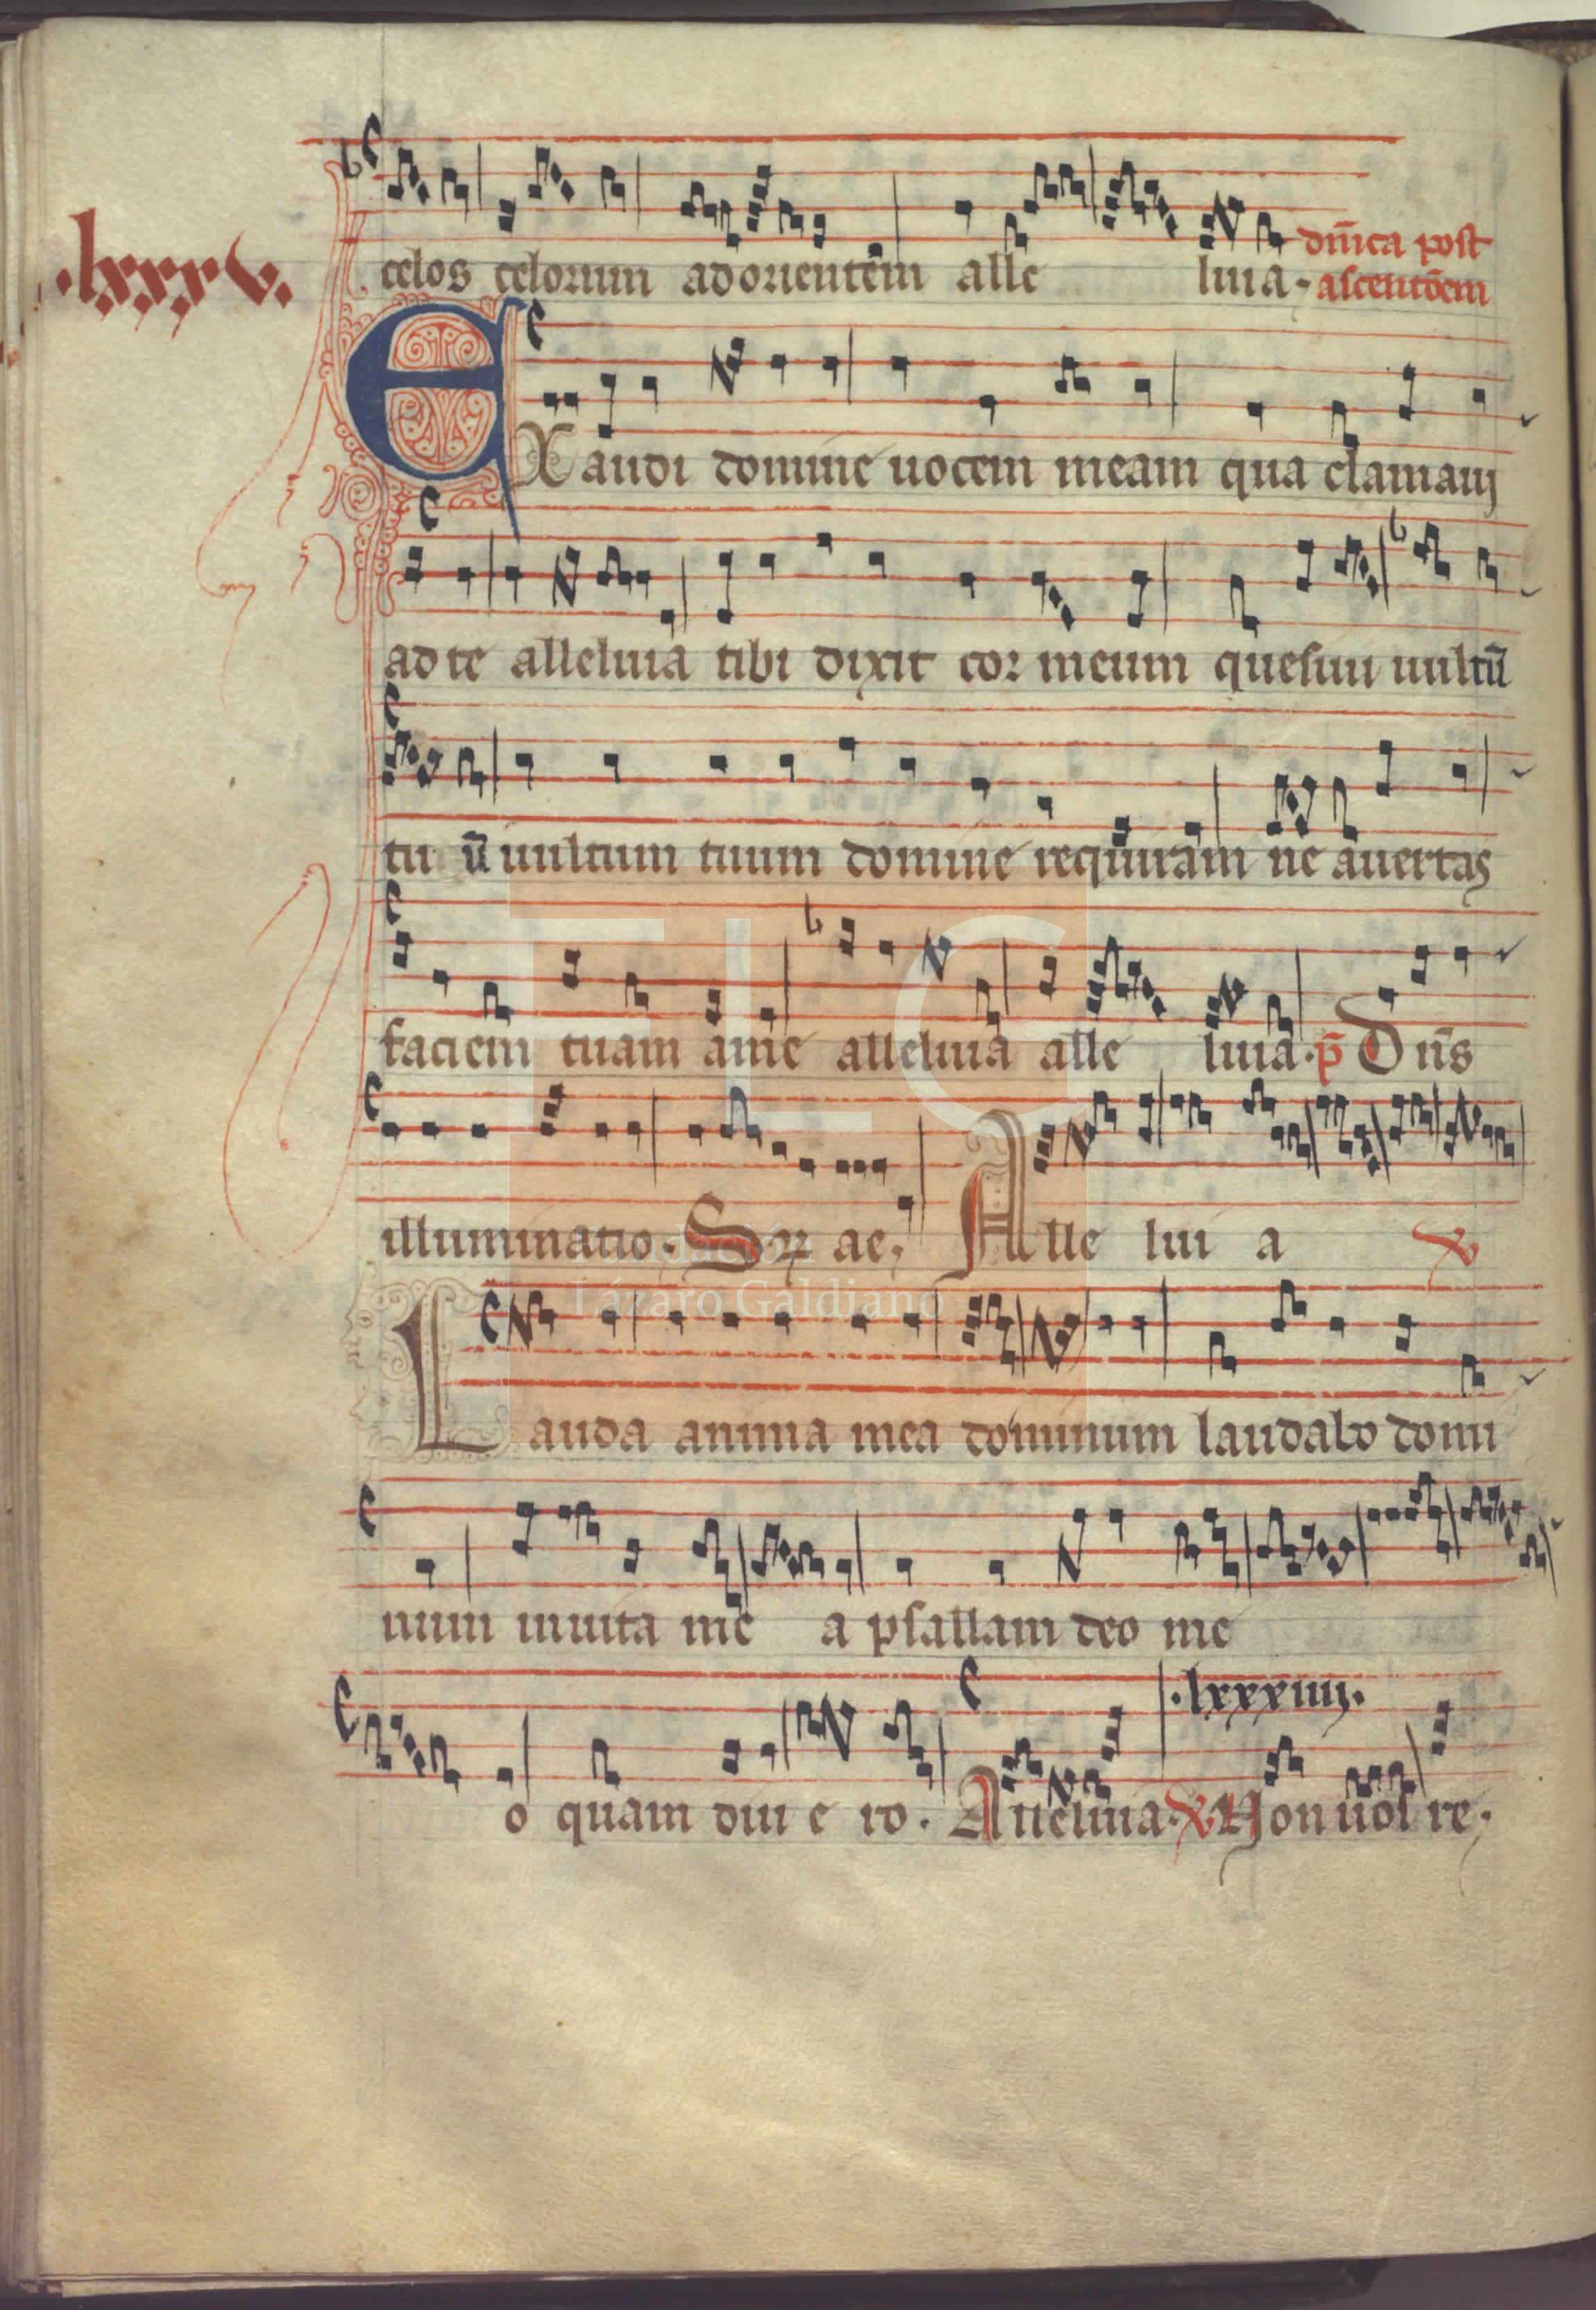 .lxxxv.
celos celorum ad orientem alle luia. dn̄ica post
ascenc̄oem
EXaudi domine uocem meam qua clamaui
ad te alleluia tibi dixit cor meum quesiui uultū
tu ū uultum tuum domine requiram ne auertas
faciem tuam a me alleluia alle luia. p̄ Dn̄s
illuminatio. ae. Alle lui a
Lauda anima mea dominum laudabo domi
num in uita me a psallam deo me
.lxxxiiij.
o quam diu e ro. Aueuia. Non uos re.
FLG
Fundación
Lázaro Galdiano